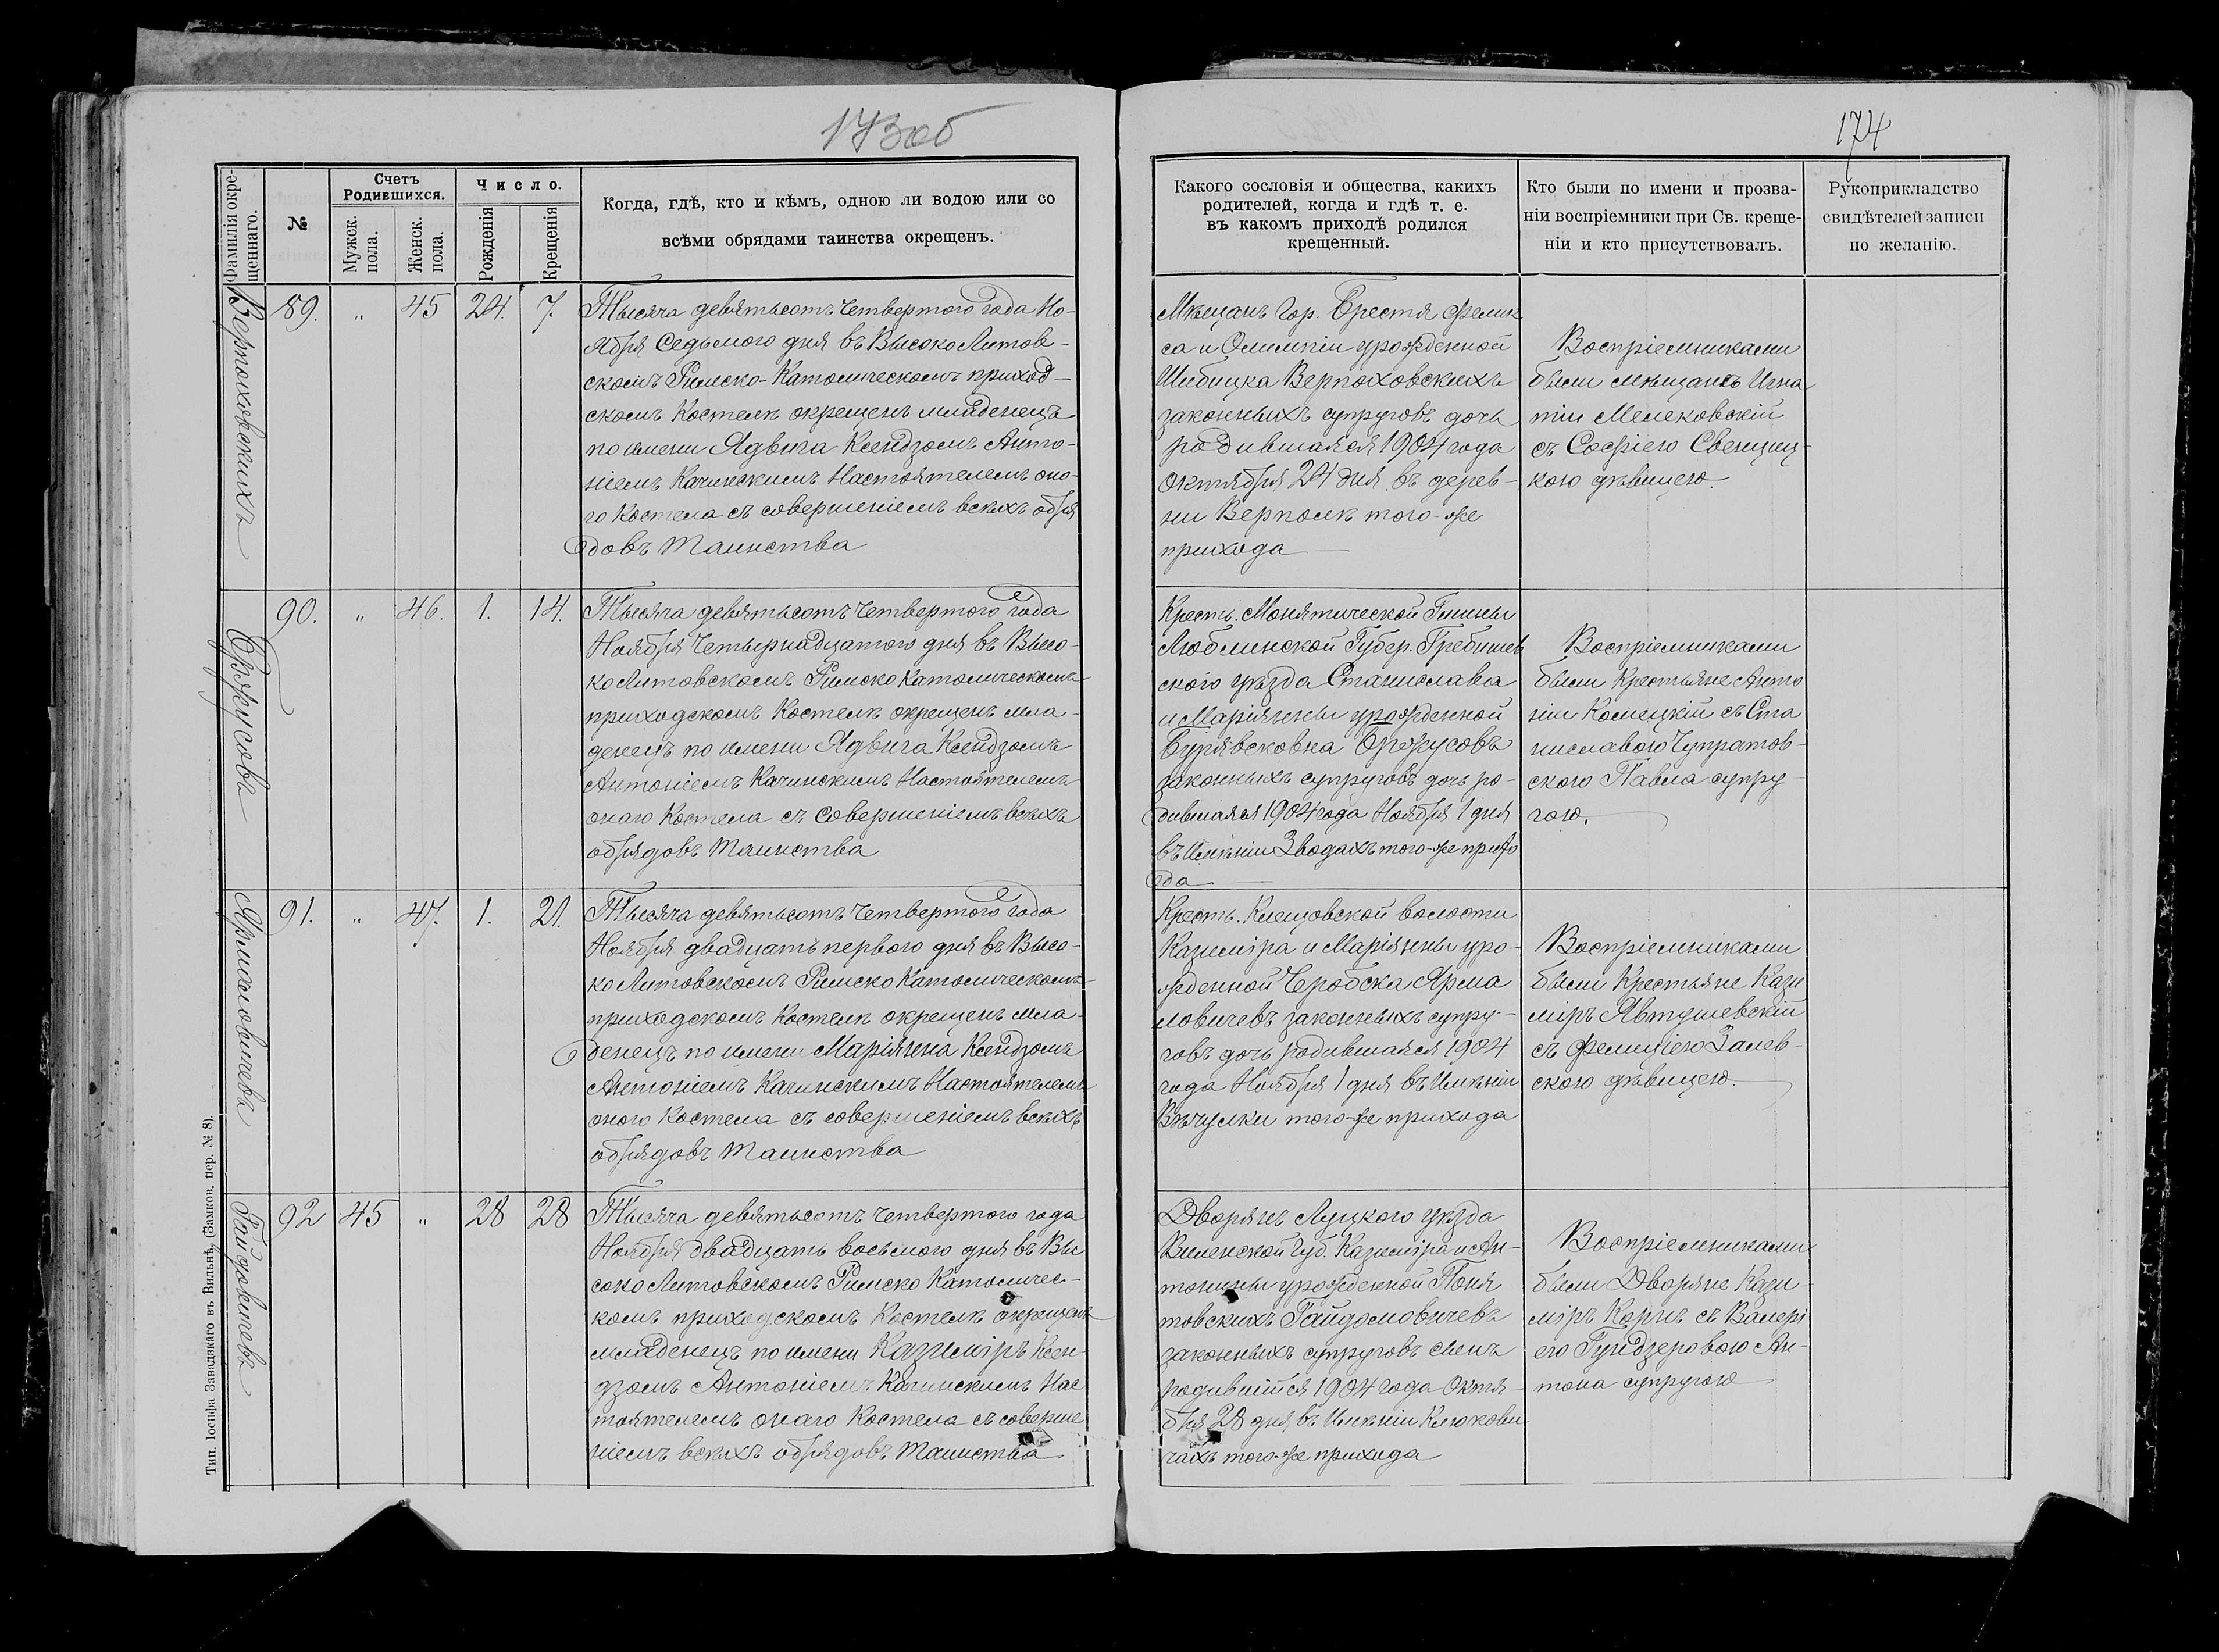 173об
174
Фамилія окре-
щеннаго.
№
Счетъ
Родившихся.
Мужск.
пола.
Женск.
пола.
Число.
Рожденія
Крещенія
Когда, гдѣ, кто и кѣмъ, одною ли водою или со
всѣми обрядами таинства окрещенъ.
Какого сословія и общества, какихъ
родителей, когда и гдѣ т. е.
въ какомъ приходѣ родился
крещенный.
Кто были по имени и прозва-
ніи воспріемники при Св. креще-
ніи и кто присутствовалъ.
Рукоприкладство
свидѣтелей записи
по желанію.
Верпоховскихъ
89. „ 45 24. 7.
Тысяча девятьсотъ четвертого года Но-
ября Седьмого дня въ Высоко Литов-
скомъ Римско-Католическомъ приход-
скомъ Костелѣ окрещенъ младенецъ
по имени Ядвига Ксендзомъ Анто-
ніемъ Качинскимъ Настоятелемъ оно-
го Костела съ совершеніемъ всѣхъ обря
довъ Таинства
Мѣщанъ Гор. Брестя Фелик
са и Олимпіи урожденной
Шибицка Верпоховскихъ
законныхъ супруговъ дочь
родившаяся 1904 года
Октября 24 дня въ дерев-
ни Верполѣ того-же
прихода
Воспріемниками
были мѣщанѣ Игна
тіи Мелековскій
съ Софіею Свенциц-
кою дѣвицею.
Оржусовъ
90. „ 46. 1. 14.
Тысяча девятьсотъ четвертого года
Ноября Четырнадцатого дня въ Высо-
ко Литовскомъ Римско Католическомъ
приходскомъ Костелѣ окрещенъ мла-
денецъ по имени Ядвига Ксендзомъ
Антоніемъ Качинскимъ Настоятелемъ
онаго Костела съ Совершеніемъ всѣхъ
обрядовъ Таинства
Кресть. Монятической Гмины
Люблинской Губер. Гребишев
ского уѣзда Станислава
и Маріянны урожденной
Бурявсковна Оржусовъ
законныхъ супруговъ дочь ро-
дившаяся 1904 года Ноября 1 дня
въ Имѣніи Зводахъ того-же прихо
да
Воспріемниками
были Крестьяне Анто
ніи Комецкій съ Ста
ниславою Чупратов-
ского Павла супру-
гою.
Ярмаловичева
91. „ 47. 1. 21.
Тысяча девятьсотъ четвертого года
Ноября двадцать первого дня въ Высо-
ко Литовскомъ Римско Католическомъ
приходскомъ Костелѣ окрещенъ мла-
денецъ по имени Маріянна Ксендзомъ
Антоніемъ Качинскимъ Настоятелемъ
оного Костела съ совершеніемъ всѣхъ
обрядовъ Таинства
Кресть. Клещовской волости
Казиміра и Маріянны уро-
жденной Черобска Ярма
ловичевъ законныхъ супру-
говъ дочь родившаяся 1904
года Ноября 1 дня въ Имѣніи
Вѣчулки того-же прихода
Воспріемниками
были Крестьяне Кази
міръ Явтушевскій
съ Фелиціею Залев-
скою дѣвицею.
Гайдовичева
92 45 „ 28 28
Тысяча девятьсотъ четвертого года
Ноября двадцать восьмого дня въ Вы
соко Литовскомъ Римско Католичес-
комъ приходскомъ Костелѣ окрещенъ
младенецъ по имени Казиміръ Ксен
дзомъ Антоніемъ Качинскимъ Нас
тоятелемъ онаго Костела съ соверше
ніемъ всѣхъ обрядовъ Таинства
Дворянъ Луцкого уѣзда
Виленской Губ. Казиміра и Ан-
тонины урожденной Поня
товскихъ Гайдомовичевъ
законныхъ супруговъ сынъ
родившійся 1904 года Октя-
бря 28 дня въ Имѣніи Клюкови
чахъ того-же прихода
Воспріемниками
были Дворяне Кази-
міръ Корнъ съ Валері
ею Гундзеровою Ан-
тона супругою
Тип. Іосифа Завадзкаго въ Вильнѣ, (Замков. пер. № 8).